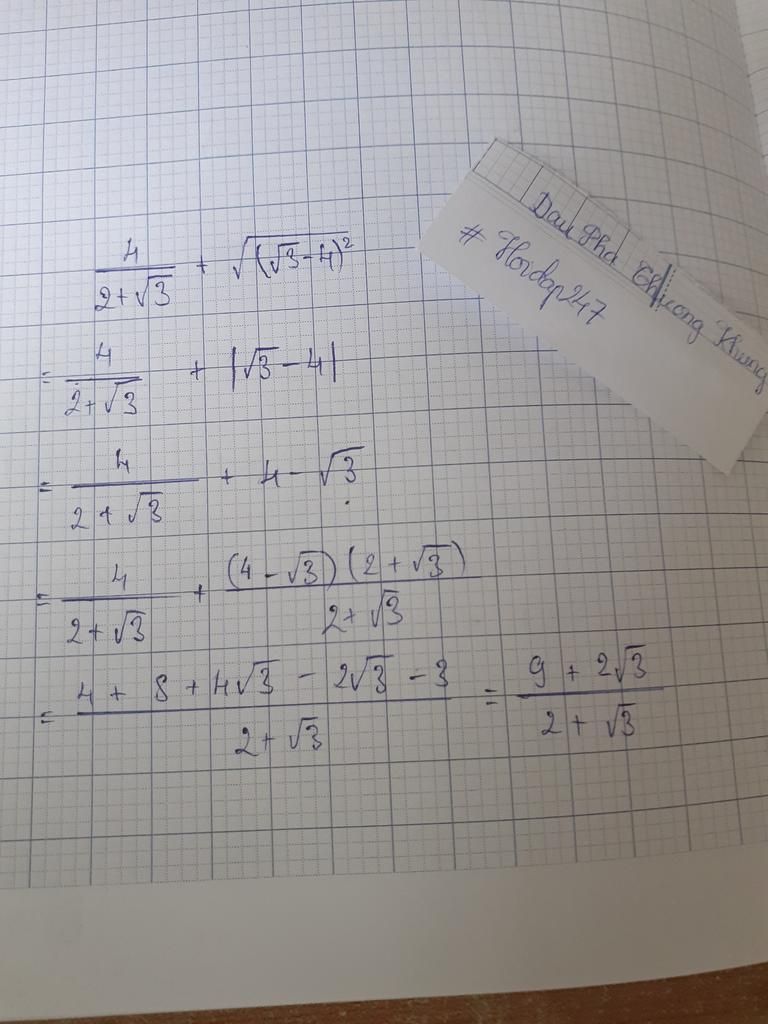 4/(2+√3) + √((√3-4)²)
= 4/(2+√3) + |√3-4|
= 4/(2+√3) + 4-√3
= 4/(2+√3) + (4-√3)(2+√3)/(2+√3)
= (4+8+4√3-2√3-3)/(2+√3) = (9+2√3)/(2+√3)
Dau Pha Thuong Khung
# Hoidap247